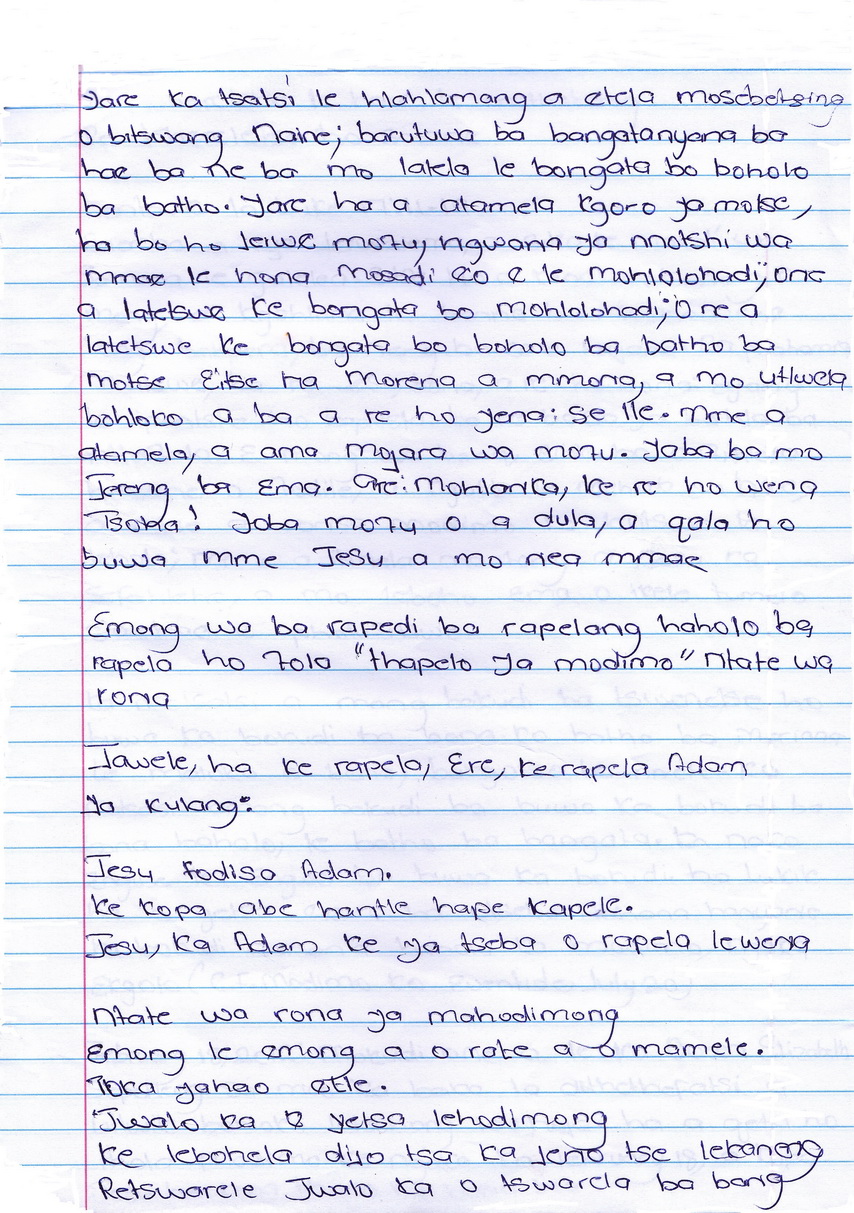 Jare ka tsatsi le hlahlamang a etela mosebetsing
o bitswang Naine; barutuwa ba bangatanyana ba
hae ba ne ba mo latela le bongata bo boholo
ba batho. Jare ha a atamela kgoro ya motse,
ha bo ho Jerwe moru, ngwana ya nnotshi wa
mmae le hona mosadi eo e le mohlolohadi; one
a latetswe ke bongata bo mohlolohadi; O ne a
latetswe ke bongata bo boholo ba batho ba
motse Eitse ha Morena a mmona, a mo utlwela
bohloko a ba a re ho yena: se lle. mme a
atamela, a ama mojara wa moru. Jaba ba mo
Jereng ba Ema. Are: mohlanka, ke re ho wena
Tsoha! Joba moru o a dula, a qala ho
buwa mme Jesu a mo nea mmae
Emong wa ba rapedi ba rapelang haholo ba
rapela ho Tola "thapelo ya modimo" Ntate wa
rona
Jawele, ha ke rapela, Ere, ke rapela Adam
ya kulang:
Jesu fodisa Adam.
ke kopa abe hantle hape kapele.
Jesu, ka Adam ke ya tseba o rapela le wena
Ntate wa rona ya mahodimong
Emong le emong a o rate a o mamele.
Toka yahao etle.
Jwalo ka o yetsa lehodimong
ke lebohela dijo tsa ka Jeno tse lekaneng
Retswarele Jwalo ka o tswarela ba bang